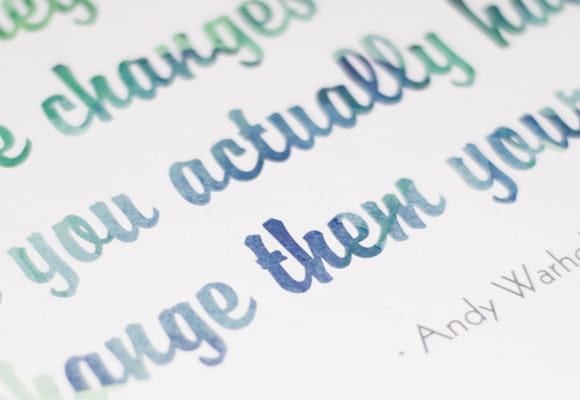 changes
you actually
change them your
. Andy Warho